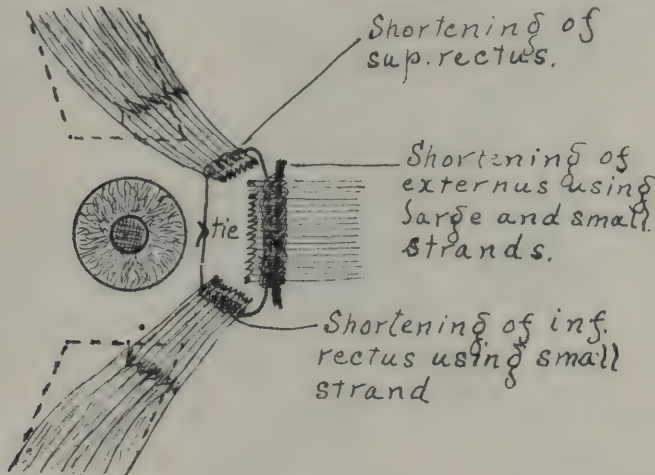 Shortening of
sup. rectus.
Shortening of
externus using
large and small
strands.
tie
Shortening of inf.
rectus using small
strand